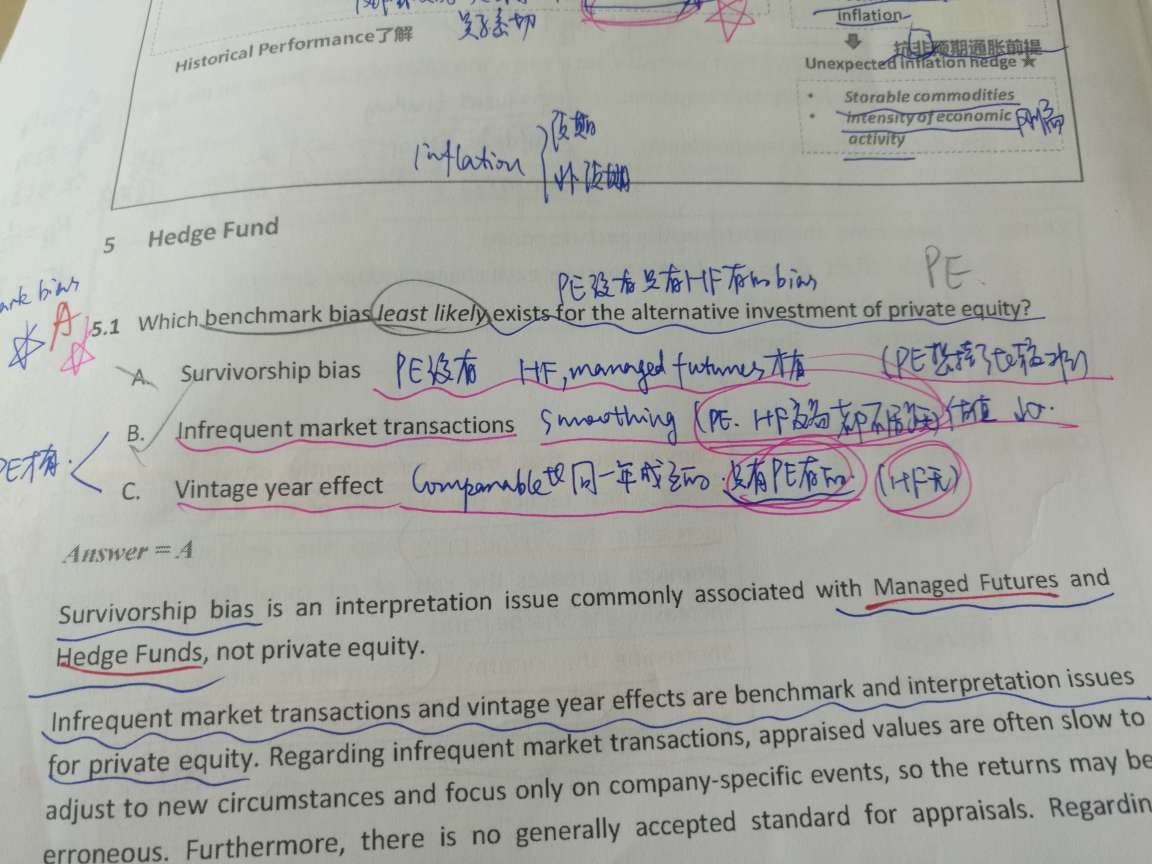 吴系切
Inflation
Historical Performance了解
抗非预期通胀前提
Unexpected inflation hedge ★
• Storable commodities
• intensity of economic
activity
inflation
预期
非预期
5 Hedge Fund
PE
PE没有只有HF有的bias
bias
A
5.1 Which benchmark bias least likely exists for the alternative investment of private equity?
A. Survivorship bias PE没有 HF, managed futures才有
B. Infrequent market transactions smoothing (PE. HF 都不活跃) 估值
PE才有.
C. Vintage year effect Comparable 同一年成立的. 只有PE有的. (HF无)
Answer = A
Survivorship bias is an interpretation issue commonly associated with Managed Futures and
Hedge Funds, not private equity.
Infrequent market transactions and vintage year effects are benchmark and interpretation issues
for private equity. Regarding infrequent market transactions, appraised values are often slow to
adjust to new circumstances and focus only on company-specific events, so the returns may be
erroneous. Furthermore, there is no generally accepted standard for appraisals. Regardin